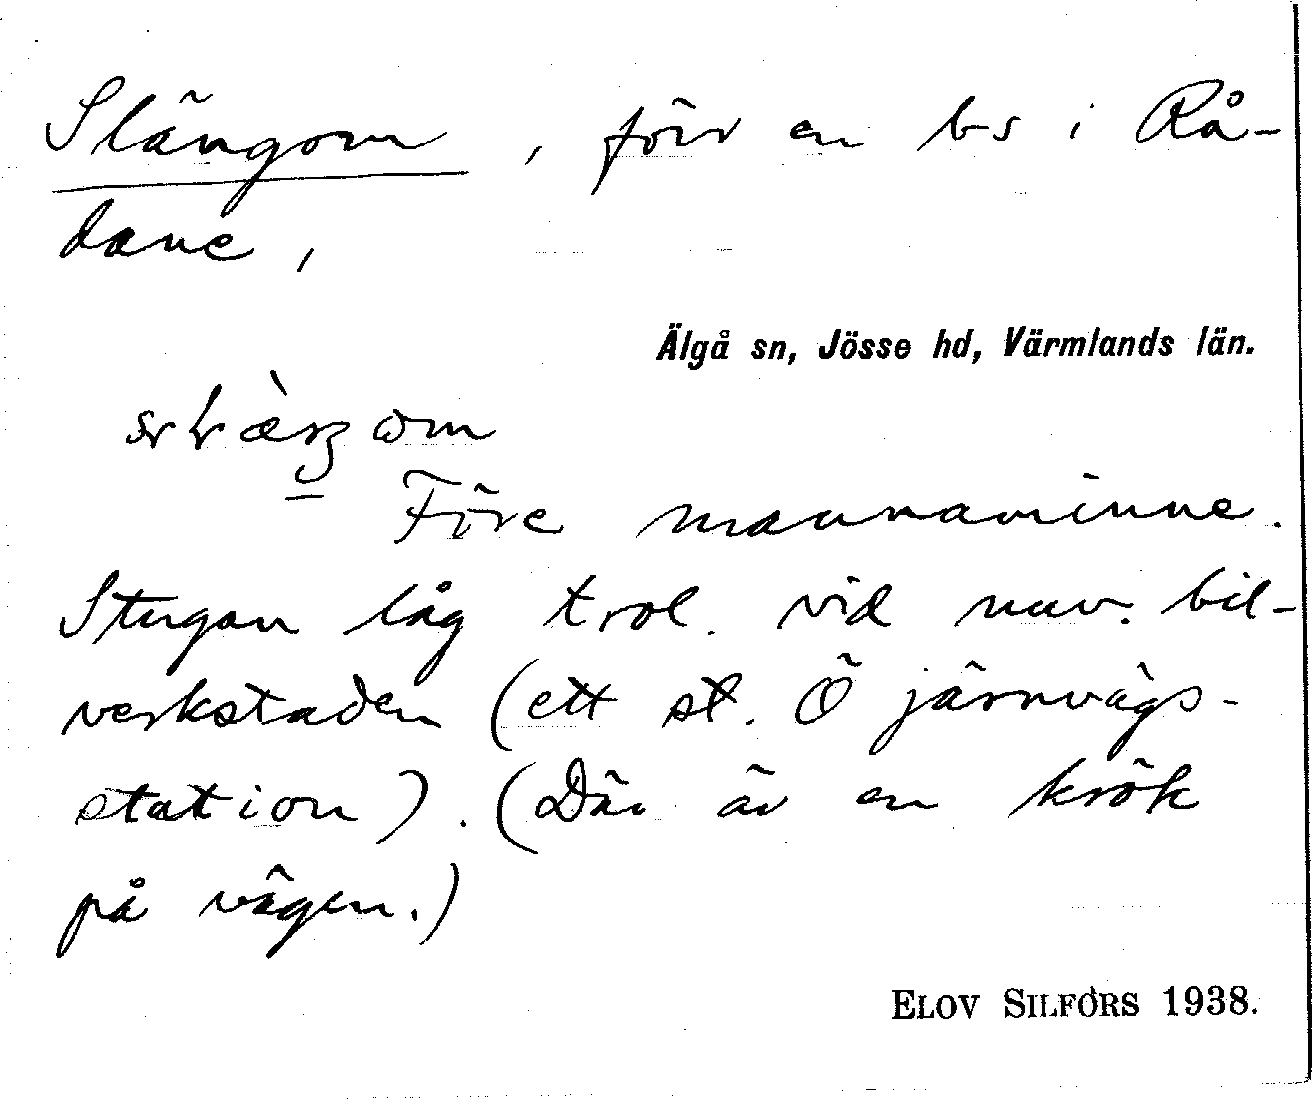 Slängom, förr en bs i Rå-
dane,
Älgå sn, Jösse hd, Värmlands län.
Före mannaminne.
Stugan låg trol. vid nuv. bil-
verkstaden (ett st. Ö järnvägs-
station). (Där är en krök
på vägen.)
ELOV SILFORS 1938.